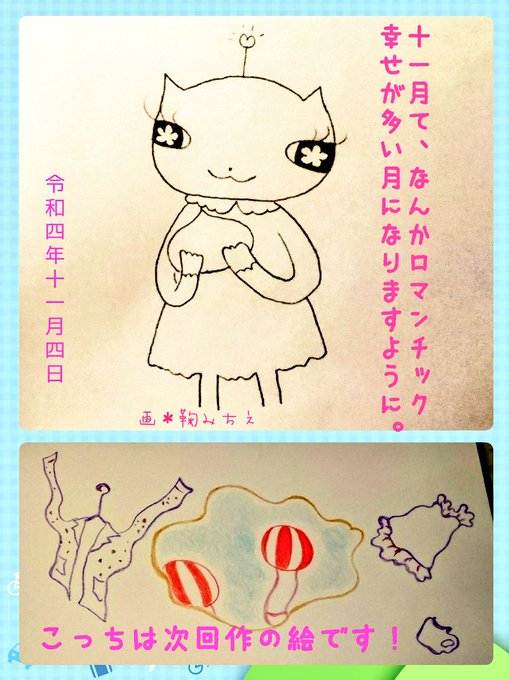 十一月て、なんかロマンチック
幸せが多い月になりますように。
令和四年十一月四日
画*鞠みちえ
こっちは次回作の絵です!